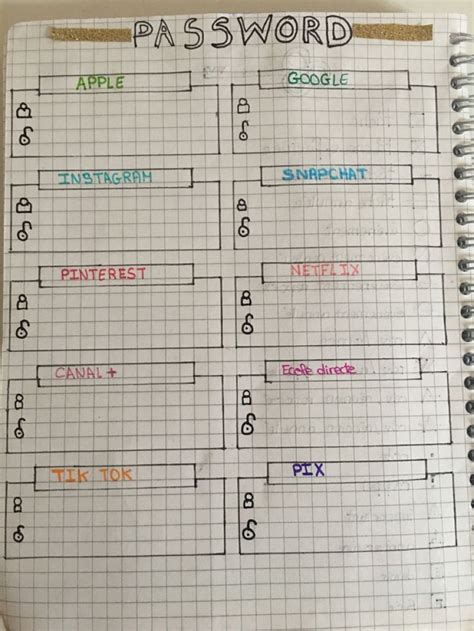 PASSWORD
APPLE
GOOGLE
INSTAGRAM
SNAPCHAT
PINTEREST
NETFLIX
CANAL +
directe
TIK TOK
PIX